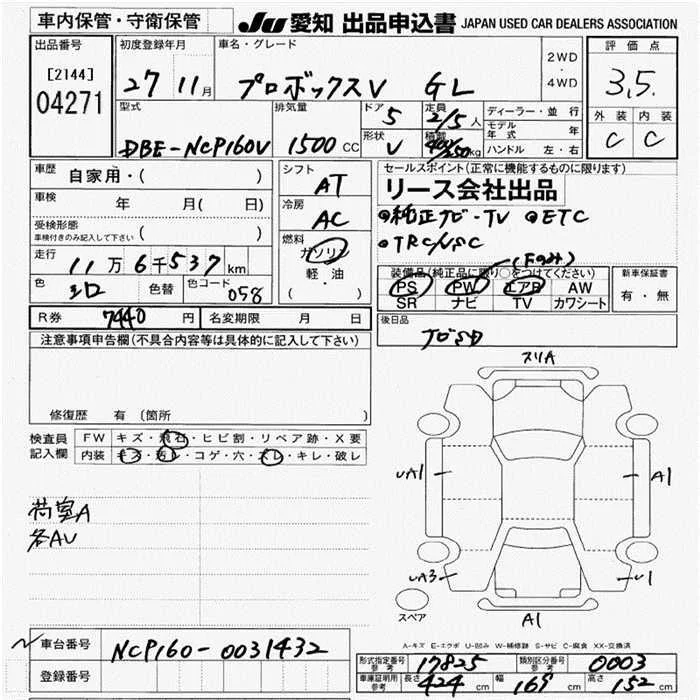 車内保管・守衛保管
JU 愛知 出品申込書 JAPAN USED CAR DEALERS ASSOCIATION
出品番号
[2144]
04271
初度登録年月
27 11月
車名・グレード
プロボックスV GL
2WD
・
4WD
評価点
3.5.
外装 内装
C C
型式
DBE-NCP160V
排気量
1500 CC
ドア
5
形状
V
定員
2/5人
積載
400/250kg
ディーラー・並行
モデル年式 年
ハンドル 左・右
車歴
自家用・( )
車検
年 月( 日)
受検形態
車検付きのみ記入して下さい ( )
走行
11万6千537km
色
シロ
色替
色コード
058
シフト
AT
冷房
AC
燃料
ガソリン
軽・油
( ・ )
セールスポイント(正常に機能するものに限ります)
リース会社出品
•純正ナビ・TV •ETC
•TRC/VSC
(Fのみ)
装備品(純正品に限り○をつけてください)
PS PW エアB AW
SR ナビ TV カワシート
新車保証書
有・無
R券 7440 円
名変期限 月 日
後日品
ナビSD
注意事項申告欄(不具合内容等は具体的に記入して下さい)
修復歴 有 (箇所 )
検査員
記入欄
FW キズ・飛石・ヒビ割・リペア跡・X要
内装 キズ・汚レ・コゲ・穴・スレ・キレ・破レ
荷室A
各AU
スリA
UA1
A1
UA3
U1
スペア
A1
A-キズ E-エクボ U-凹み W-補修跡 S-サビ C-腐食 XX-交換済
車台番号 NCP160-0031432
登録番号
形式指定番号
参考
17825
類別区分番号
参考
0003
車庫証明用
参考
長さ 424 cm
幅 169 cm
高さ 152 cm